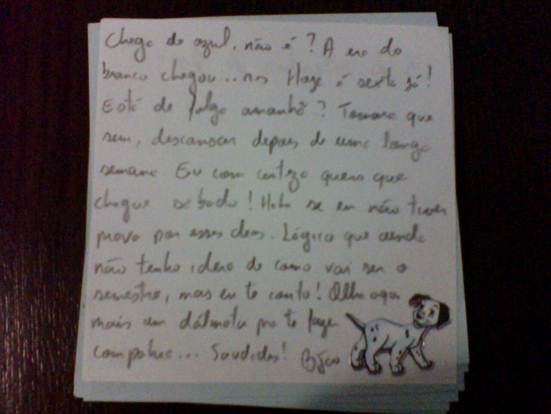 Chega de azul, não é? A era do
branco chegou... nos Hoje é sexta já!
Está de folga amanhã? Tomara que
sim, descansar depois de uma longa
semana Eu com certeza quero que
chegue sábado! Haha se eu não tiver
prova por esses dias. Lógico que ainda
não tenho ideia de como vai ser o
semestre, mas eu te conto! Olha aqui
mais um dálmata pra te fazer
companhia... Saudades! Bjao